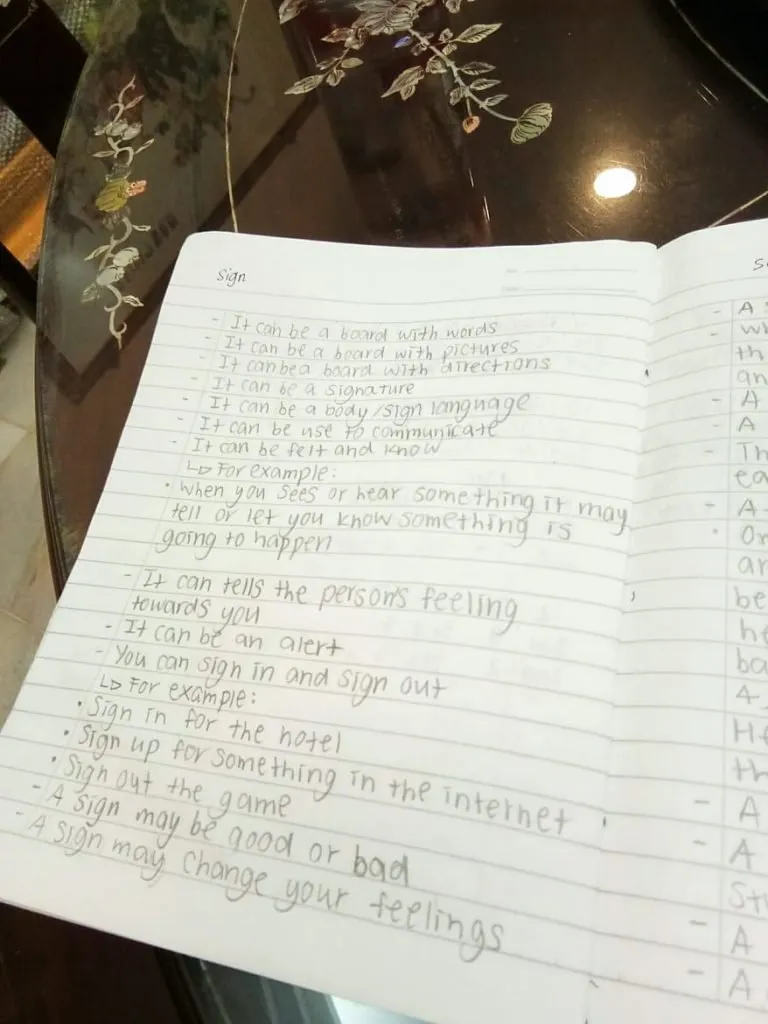 Sign
- It can be a board with words
- It can be a board with pictures
- It can be a board with directions
- It can be a signature
- It can be a body/sign language
- It can be use to communicate
- It can be felt and know
↳ For example:
• when you sees or hear something it may
tell or let you know something is
going to happen
- It can tells the person's feeling
towards you
- It can be an alert
- You can sign in and sign out
↳ For example:
• Sign in for the hotel
• Sign up for something in the internet
• Sign out the game
- A sign may be good or bad
- A sign may change your feelings
- A
-
th
an
- A
- A
- Th
ea
- A
•
ar
be
he
ba
4
th
- A
- A
- A
- A